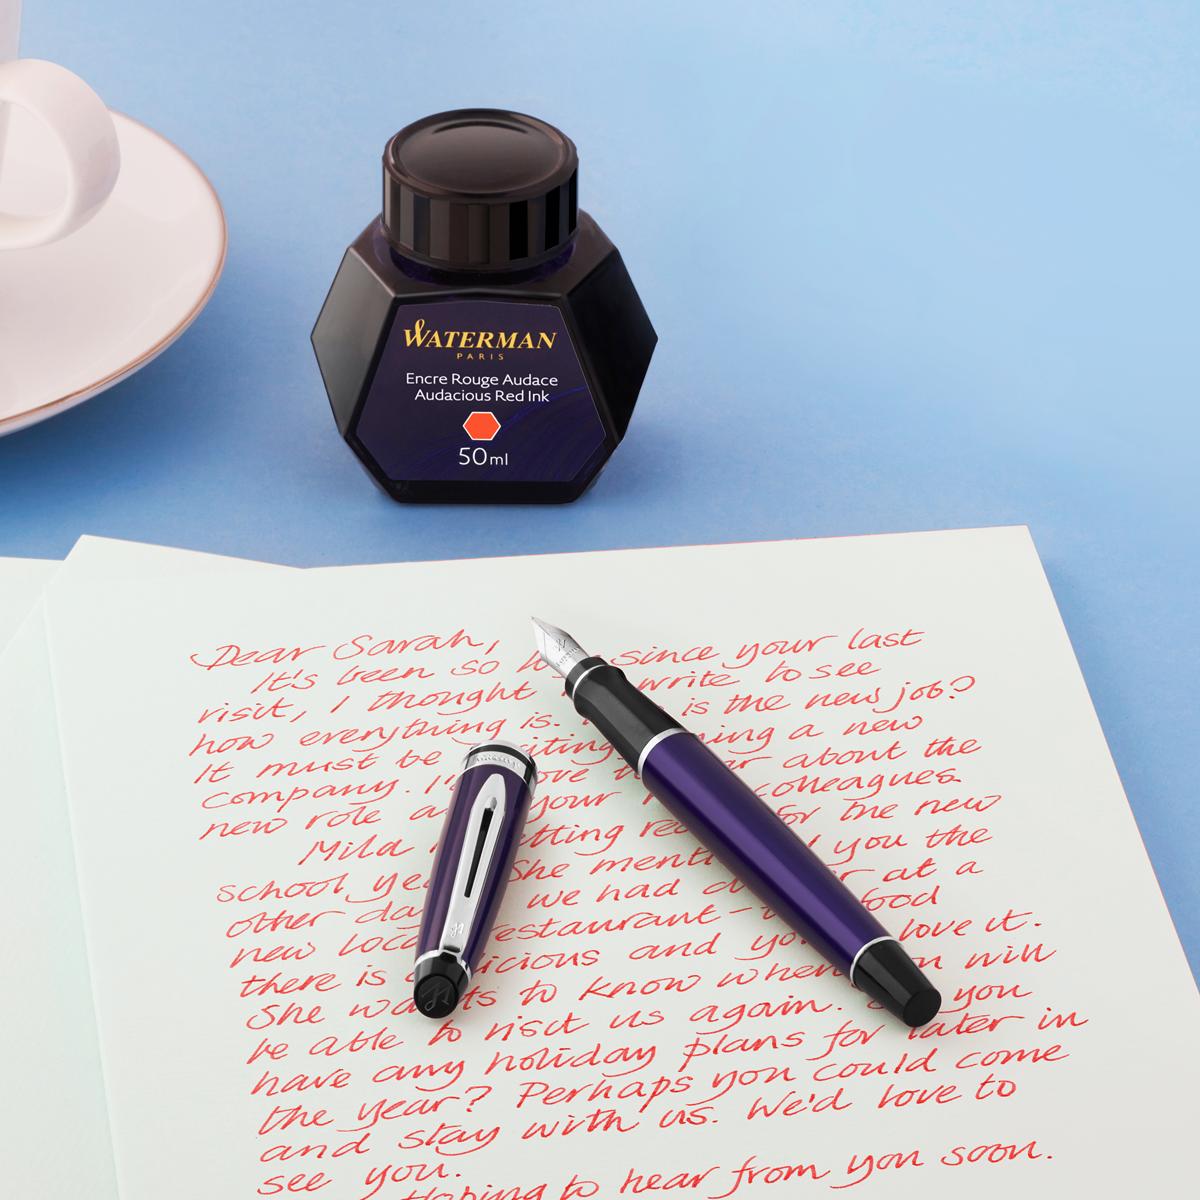 WATERMAN
PARIS
Encre Rouge Audace
Audacious Red Ink
50ml
Dear Sarah,
It's been so since your last
visit, I thought write to see
how everything is. is the new job?
It must be a new
company. about the
new role your colleagues
Mila for the new
school She you the
other we had at a
new restaurant - food
there is and love it.
She to know when will
be able to visit us again. you
have any holiday plans for later in
the year? Perhaps you could come
and stay with us. We'd love to
see you.
Hoping to hear from you soon.